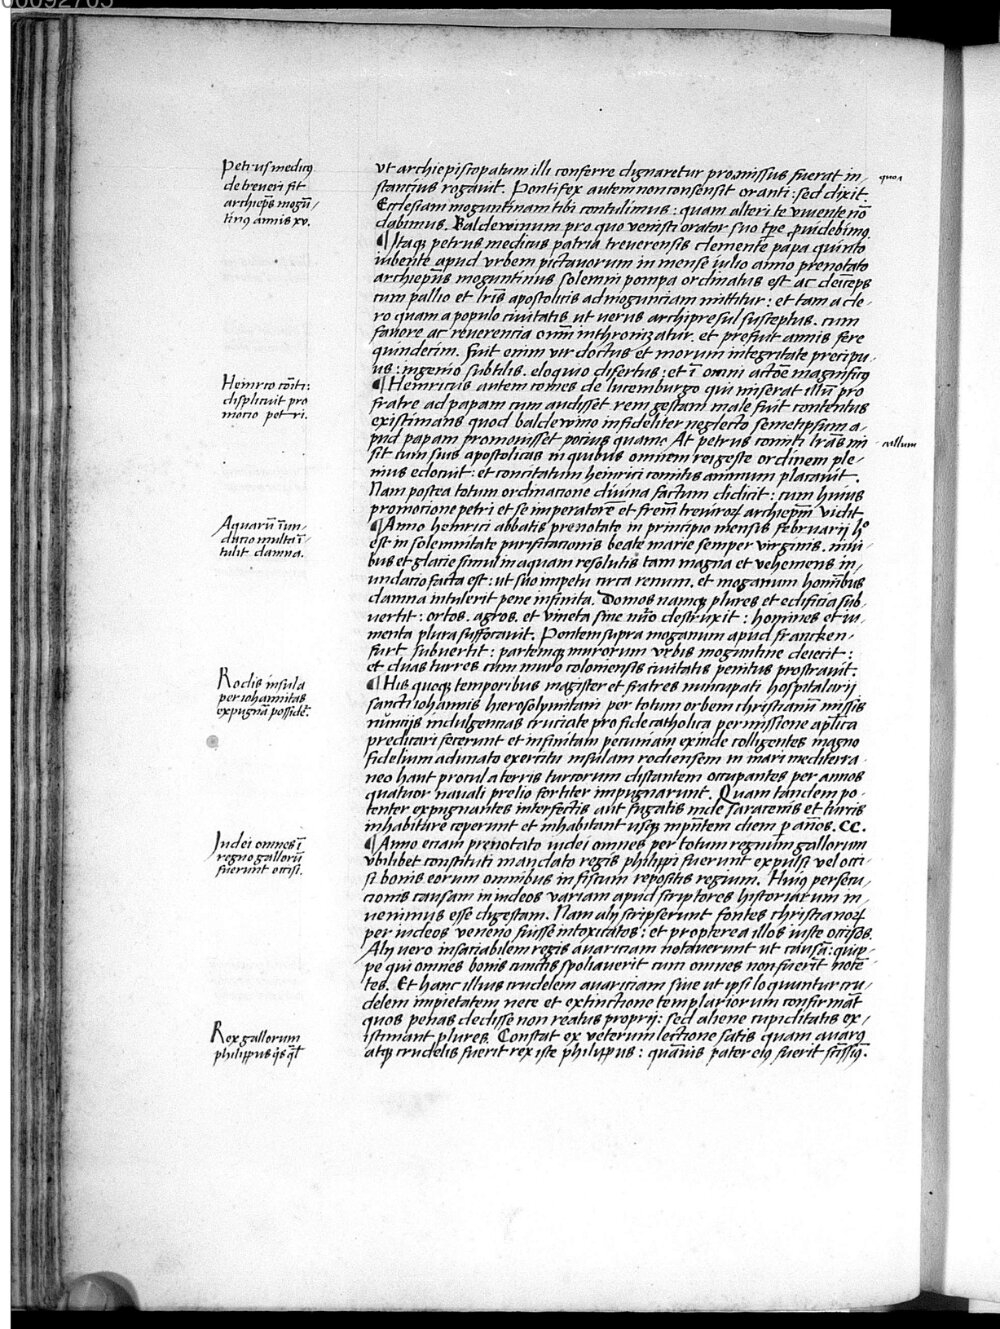 00092705
Petrus medicꝯ
de treueri fit
archiep̄s mogū-
tinꝯ annis xv.
vt archiepiscopatum illi conferre dignaretur promissus fuerat in-
stancius rogauit. Pontifex autem non consensit oranti: sed dixit.
quon
Ecclesiam moguntinam tibi contulimus: quam alteri te viuente nō
dabimus. Balderwinum pro quo venisti orator suo tp̄e ꝓuidebimꝯ
¶ Itaqꝫ petrus medicus patria treuerensis clemente papa quinto
iubente apud vrbem pictauorum in mense iulio anno prenotato
archiep̄us moguntinus solemni pompa ordinatus est ac deiceps
cum pallio et lr̄is apostolicis ad mogunciam mittitur: et tam a cle-
ro quam a populo ciuitatis ut verus archipresul susceptus. cum
fauore ac reuerencia omni inthronizatur. et prefuit annis fere
quindecim. Fuit enim vir doctus et morum integritate precipu-
us: ingenio subtilis. eloquio disertus: et ī omni actōe magnificꝯ
Heinrico cōiti:
displicuit pro
mocio petri.
¶ Heinricus autem comes de lucemburgo qui miserat illū pro
fratre ad papam cum audisset rem gestam male fuit contentus
existimans quod baldewino infideliter neglecto semetipsum a-
pud papam promouisset pocius quam. At petrus comiti lrās mi
- illum
sit cum suis apostolicas in quibus omnem rei geste ordinem ple-
nius edocuit: et concitatum heinrici comitis animum placauit.
Nam postea totum ordinacione diuina factum didicit: cum huius
promocione petri et se imperatorē et frēm treuiroꝝ archiep̄m vidit
Aquarū īun-
dacio multa ī-
tulit damna.
¶ Anno heinrici abbatis prenotate in principio mensis februarij hͦ
est in solemnitate purificacionis beate marie semper virginis. niui-
bus et glacie simul in aquam resolutis tam magna et vehemens in-
undacio facta est: ut suo impetu circa renum. et moganum hominibus
damna intulerit pene infinita. Domos namqꝫ plures et edificia sub-
uertit: ortos. agros. et vineta sine nūo destruxit: homines et iu-
menta plura suffocauit. Pontem supra moganum apud francken-
furt subuertit: partemqꝫ murorum vrbis moguntine deiecit:
et duas turres cum muro coloniensis ciuitatis penitus prostrauit.
Rodis insula
per iohannitas
expugnāt possidēt.
¶ His quoqꝫ temporibus magister et fratres nuncupati hospitalarij
sancti iohannis hierosolymitani per totum orbem christianū missis
nūncijs indulgencias cruciate pro fide catholica permissione apl̄ica
predicari fecerunt et infinitam pecuniam exinde colligentes magno
fidelium adunato exercitu insulam rodiensem in mari mediterra-
neo haut procul a terris turcorum distantem occupantes per annos
quatuor nauali prelio fortiter impugnarunt. Quam tandem po-
tenter expugnantes interfectis aut fugatis inde saracenis et turcis
inhabitare ceperunt et inhabitant usqꝫ in pn̄tem diem ꝑ an̄os. CC.
Judei omnes ī
regno gallorū
fuerunt occisi.
¶ Anno eciam prenotato iudei omnes per totum regnum gallorum
vbilibet constituti mandato regis philippi fuerunt expulsi vel occi-
si bonis eorum omnibus in fiscum repositis regium. Huiꝯ persecu-
cionis causam in iudeos variam apud scriptores historiarum in-
uenimus esse digestam. Nam alij scripserunt fontes christianoꝝ
per iudeos veneno fuisse intoxicatos: et propterea illos iuste occisos.
Alij vero insaciabilem regis auariciam notauerunt ut causā: quip-
pe qui omnes bonis cunctis spoliauerit cum omnes non fuerīt nocē-
tes. Et hanc illius crudelem auariciam siue ut ipsi loquuntur cru-
delem impietatem nece et extinctione templariorum confirmāt
quos penas dedisse non reatus proprij: sed aliene cupiditatis ex-
istimant plures. Constat ex veterum lectione satis quam auarꝯ
Rex gallorum
philippus qis qͥt
atqꝫ crudelis fuerit rex iste philippus: quāuis pater eiꝯ fuerit sc̄issimꝯ.